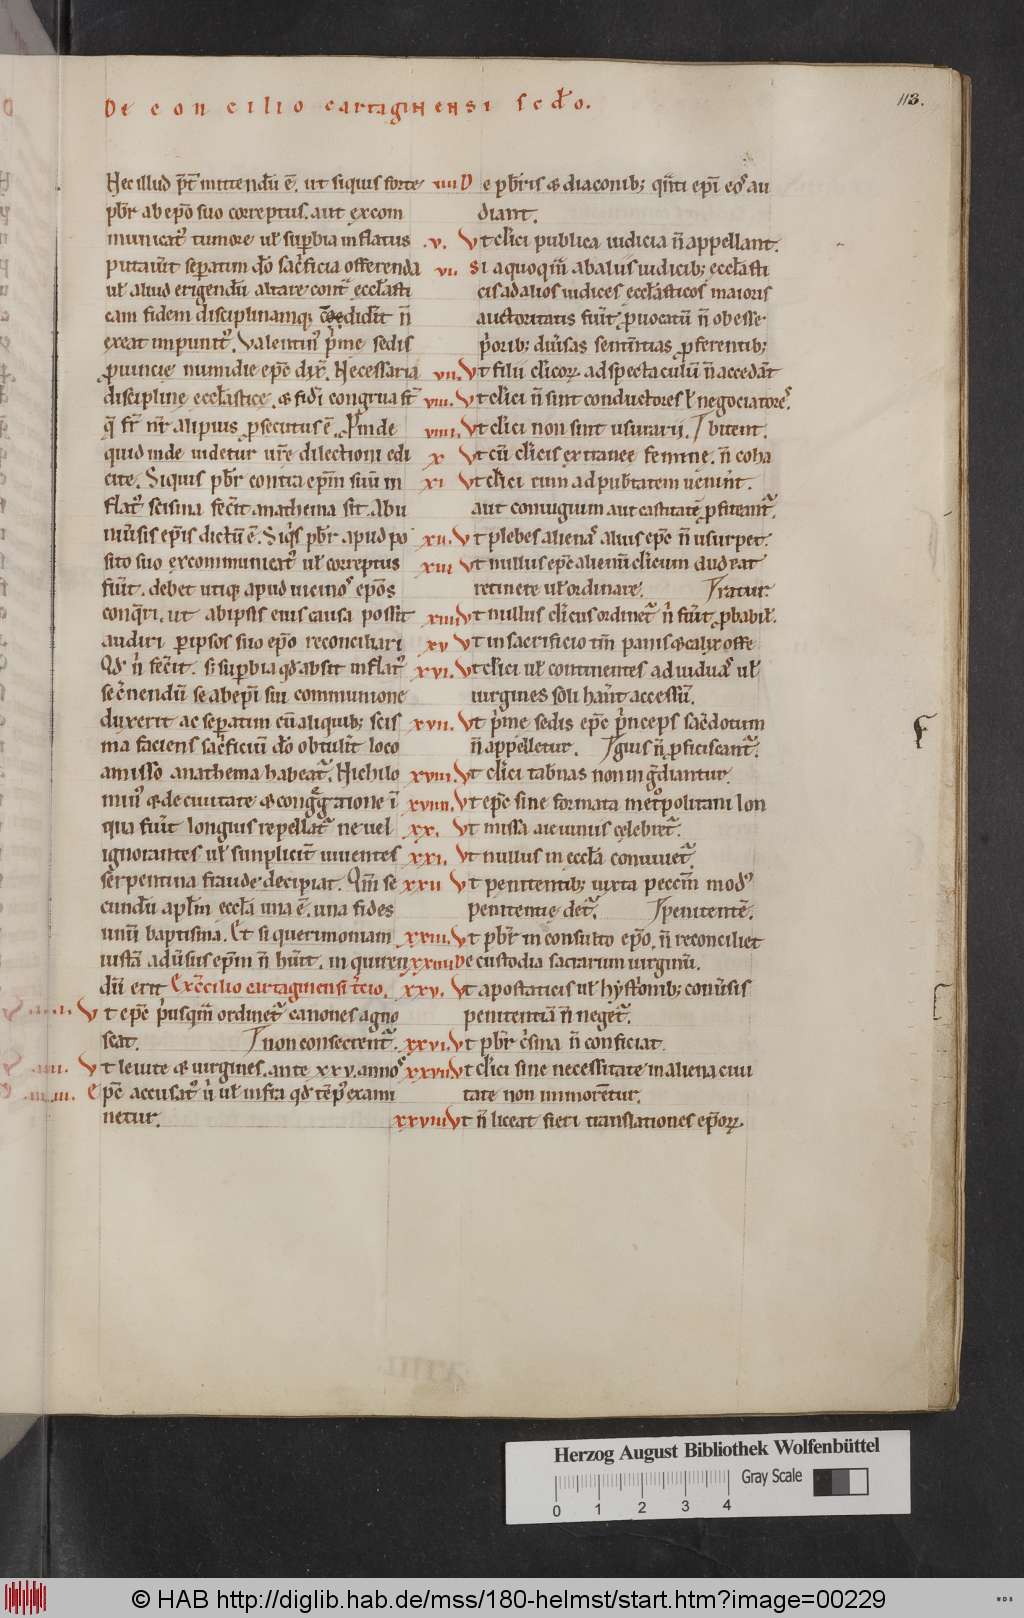 De concilio cartaginensi scd̄o.
113.
Nec illud p̄t̄ mittendū ē. ut siquis forte
pb̄r ab ep̄o suo correptus. aut excom
municat᷒ tumore ul̄ sup̄bia inflatus
putau̅it sep̄atim d̄o sac̄ficia offerenda
ul̄ aliud erigendū altare cont̄ ecclāsti
cam fidem disciplinamq; c̄ didit̄ n̄
exeat impunit᷒. Valentin᷒ p̄me sedis
prouincie numidie ep̄c dix̄. Necessaria
discipline ecclāstice. & fidei congrua st̄
q̄ fr̄ nr̄ alipius prosecutus ē. Proinde
quid inde uidetur ur̄e dilectioni edi
cite. Siquis pb̄r contra ep̄m suū in
flat᷒ scisma fec̄it anathema sit. Abu
niu̅sis ep̄is dictū ē. Siq̄s pb̄r apud p̄o
sito suo excommunicat᷒ ul̄ correptus
fu̅it. debet utiq; apud uicinos ep̄os
conq̄ri. ut ab ipsis eius causa possit
audiri per ipsos suo ep̄o reconciliari
Qd̄ n̄ fec̄it. si sup̄bia qd̄ absit inflat᷒
sec̄nendū se ab ep̄i sui communione
duxerit ac sep̄atim cū aliquib; scis
ma faciens sac̄ficiū d̄o obtul̄it loco
amisso anathema habeat᷒. Nichilo
min᷒ & de ciuitate & congregatione ī
qua fu̅it longius repellat᷒ ne uel
ignorantes ul̄ simplicit̄ uiuentes
serpentina fraude decipiat. Qm̄ se
cundū apl̄m eccl̄a una ē. una fides
unū baptisma. Et si querimoniam
iustā adu̅sus ep̄m n̄ hu̅it. inquiren
dū erit Ex c̄cilio cartaginensi t̄cio.
Ut ep̄c p̄usq̄m ordinet᷒ canones agno
scat. non consecrent᷒.
Ut leuite & uirgines. ante xxv. annos
Ep̄c accusat᷒ n̄ ul̄ infra qd̄ tēp᷒ exami
netur.
iiii De pb̄ris & diaconib; qn̄ti ep̄i eos au
diant.
v. Ut cl̄ici publica iudicia n̄ appellant.
vi. Si a quoq̄m ab aliis iudicib; ecclāsti
cis ad alios iudices ecclāsticos maioris
auctoritatis fu̅it prouocatū n̄ obesse
p̄orib; diu̅sas sententias proferentib;
vii. Ut filii cl̄icorꝝ ad spectaculū n̄ accedāt
viii. Ut cl̄ici n̄ sint conductores ul̄ negociatores.
viiii. Ut cl̄ici non sint usurarii. bitent.
x Ut cū cl̄icis extranee femine. n̄ coha
xi Ut cl̄ici cum ad pub̄tatem uenīnt.
aut coniugium aut castitatē profiteant᷒.
xii. Ut plebes alienas alius ep̄c n̄ usurpet.
xiii Ut nullus ep̄c alienū cl̄icum audeat
retinere ul̄ ordinare. ratur
xiiii Ut nullus cl̄icus ordinet᷒ n̄ fu̅it probabil̄.
xv Ut in sacrificio tm̄ panis & calix offe
xvi. Ut cl̄ici ul̄ continentes ad uiduas ul̄
uirgines soli hān̄t accessū.
xvii. Ut p̄me sedis ep̄c p̄nceps sac̄dotum
n̄ appelletur. guis n̄ proficiscant᷒.
xviii. Ut cl̄ici tab̄nas non ingrediantur.
xviiii. Ut ep̄c sine formata met᷒politani lon
xx. Ut missa a ieiunis celebret᷒.
xxi. Ut nullus in eccl̄a conuiuet᷒.
xxii Ut penitentib; iuxta pecc̄m modus
penitentie det᷒. penitentē.
xxiii. Ut pb̄r inconsulto ep̄o. n̄ reconciliet
xxiiii De custodia sacrarum uirginū.
xxv. Ut apostaticis ul̄ hystrionib; conu̅sis
penitentiā n̄ neget᷒.
xxvi. Ut pb̄r c̄sma n̄ conficiat.
xxvii Ut cl̄ici sine necessitate in aliena ciui
tate non immorentur.
xxviii Ut n̄ liceat fieri translationes ep̄orꝝ.
Herzog August Bibliothek Wolfenbüttel
0 1 2 3 4 Gray Scale
© HAB http://diglib.hab.de/mss/180-helmst/start.htm?image=00229